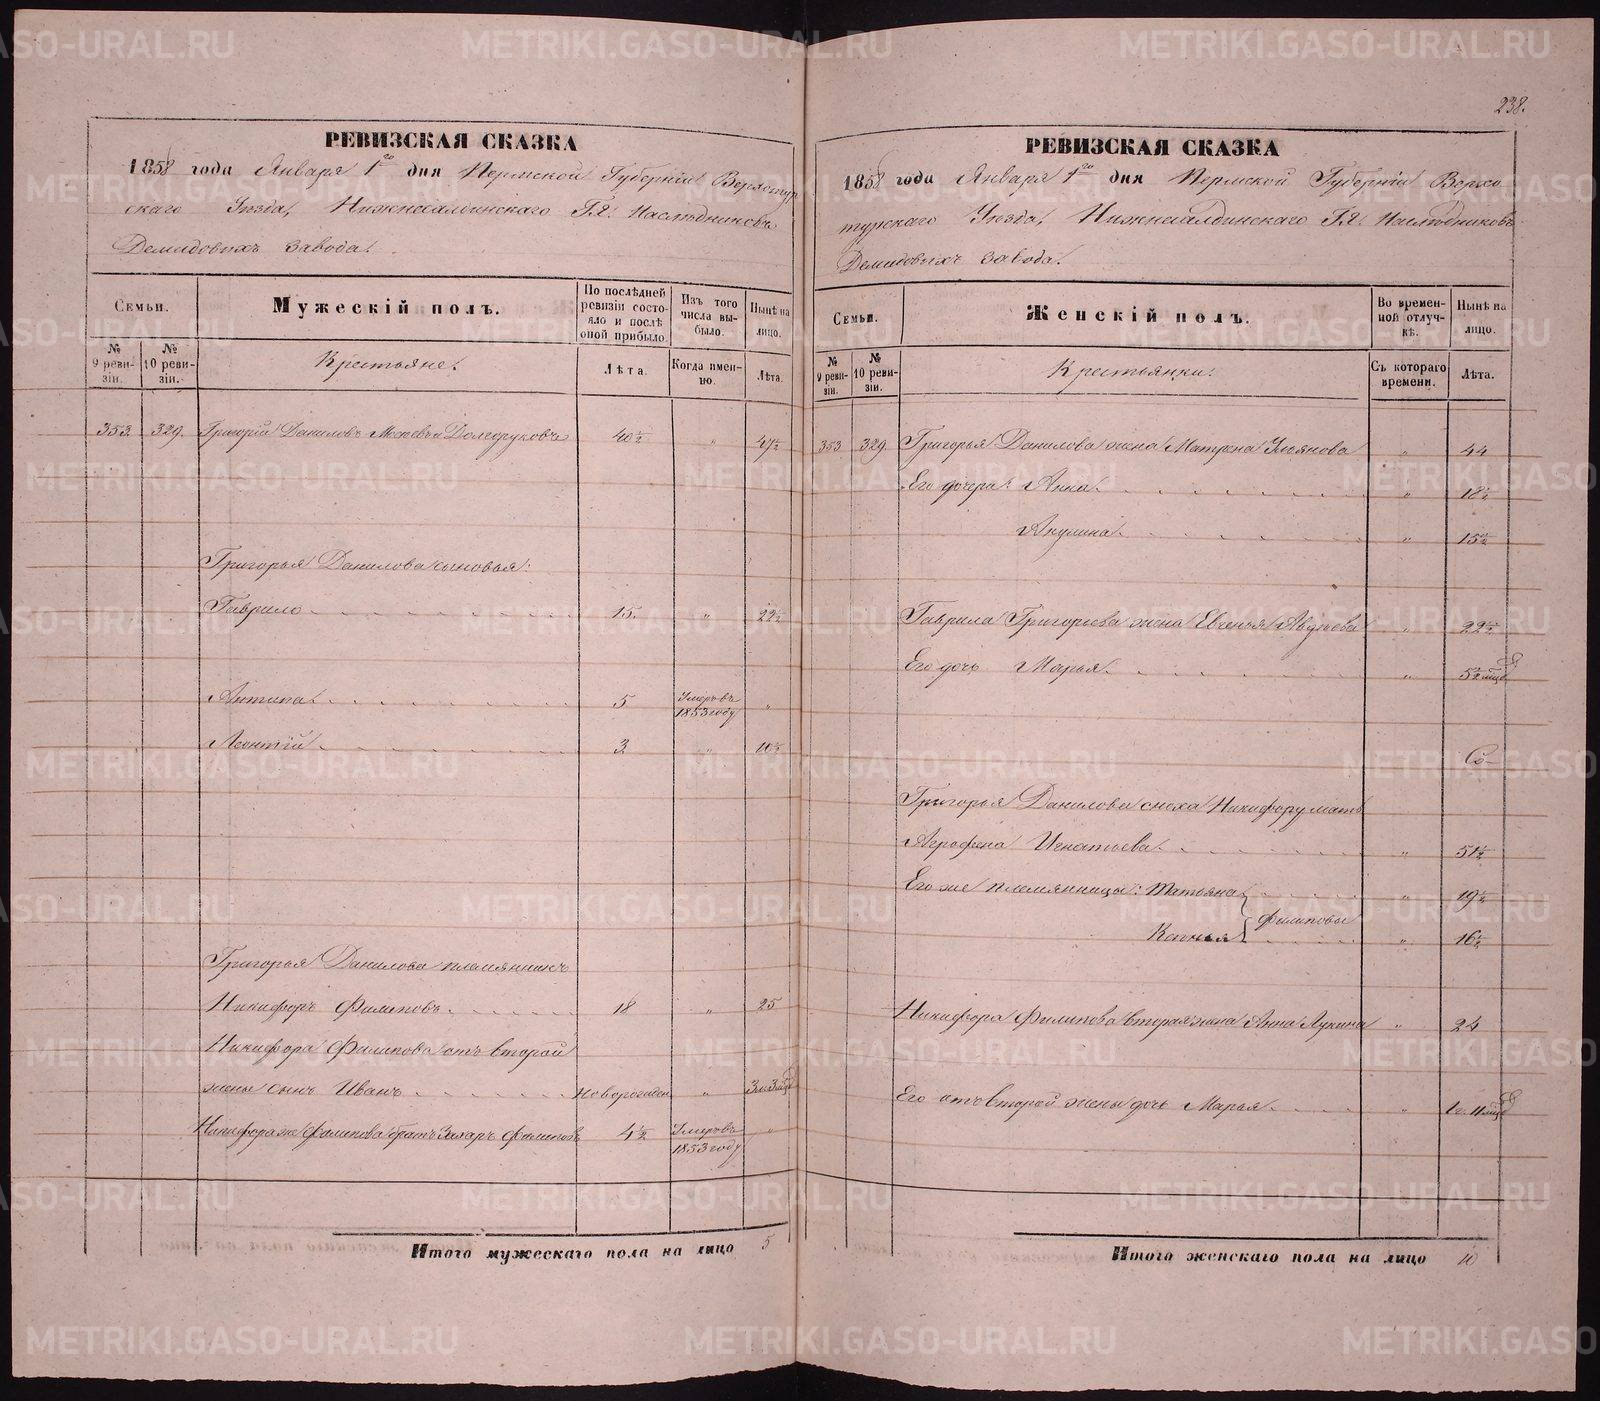 238.
РЕВИЗСКАЯ СКАЗКА
1858 года Января 1го дня Пермской Губерніи Верхотур
скаго Уѣзда, Нижнесалдинскаго Г.г. Наслѣдниковъ
Демидовыхъ завода.
Семьи.
Мужескій полъ.
По послѣдней ревизіи состояло и послѣ оной прибыло.
Изъ того числа выбыло.
Нынѣ на лицо.
№ 9 ревизіи.
№ 10 ревизіи.
Крестьяне.
Лѣта.
Когда именно.
Лѣта.
353. 329. Григорій Даниловъ Долгоруковъ 40½ " 47½
Григорья Данилова сыновья:
Гаврило 15. " 22½
Антипа 5 Умеръ въ 1853 году "
Леонтій 3 " 10½
Григорья Данилова племянникъ
Никифоръ Филиповъ 18 " 25
Никифора Филипова отъ второй
жены сынъ Иванъ новорожден "
Никифора же Филипова братъ Захаръ Филиповъ 4½ Умеръ въ 1853 году "
Итого мужескаго пола на лицо 5
РЕВИЗСКАЯ СКАЗКА
1858 года Января 1го дня Пермской Губерніи Верхо
турскаго Уѣзда, Нижнесалдинскаго Г.г. Наслѣдниковъ
Демидовыхъ завода.
Семьи.
Женскій полъ.
Во временной отлучкѣ.
Нынѣ на лицо.
№ 9 ревизіи.
№ 10 ревизіи.
Крестьянки.
Съ котораго времени.
Лѣта.
353 329. Григорья Данилова жена Матрена " 44
Его дочери: Анна " 18½
Акулина " 15½
Гаврила Григорьева жена Евгенья " 22½
Его дочь Марья "
Григорья Данилова сноха Никифору мать
Агрофена Игнатьева " 51½
Его же племянницы: Татьяна " 19½
Филиповы
Ксенья " 16½
Никифора Филипова вторая жена Анна Лукина " 24
Его отъ второй жены дочь Марья "
Итого женскаго пола на лицо 10
METRIKI.GASO-URAL.RU